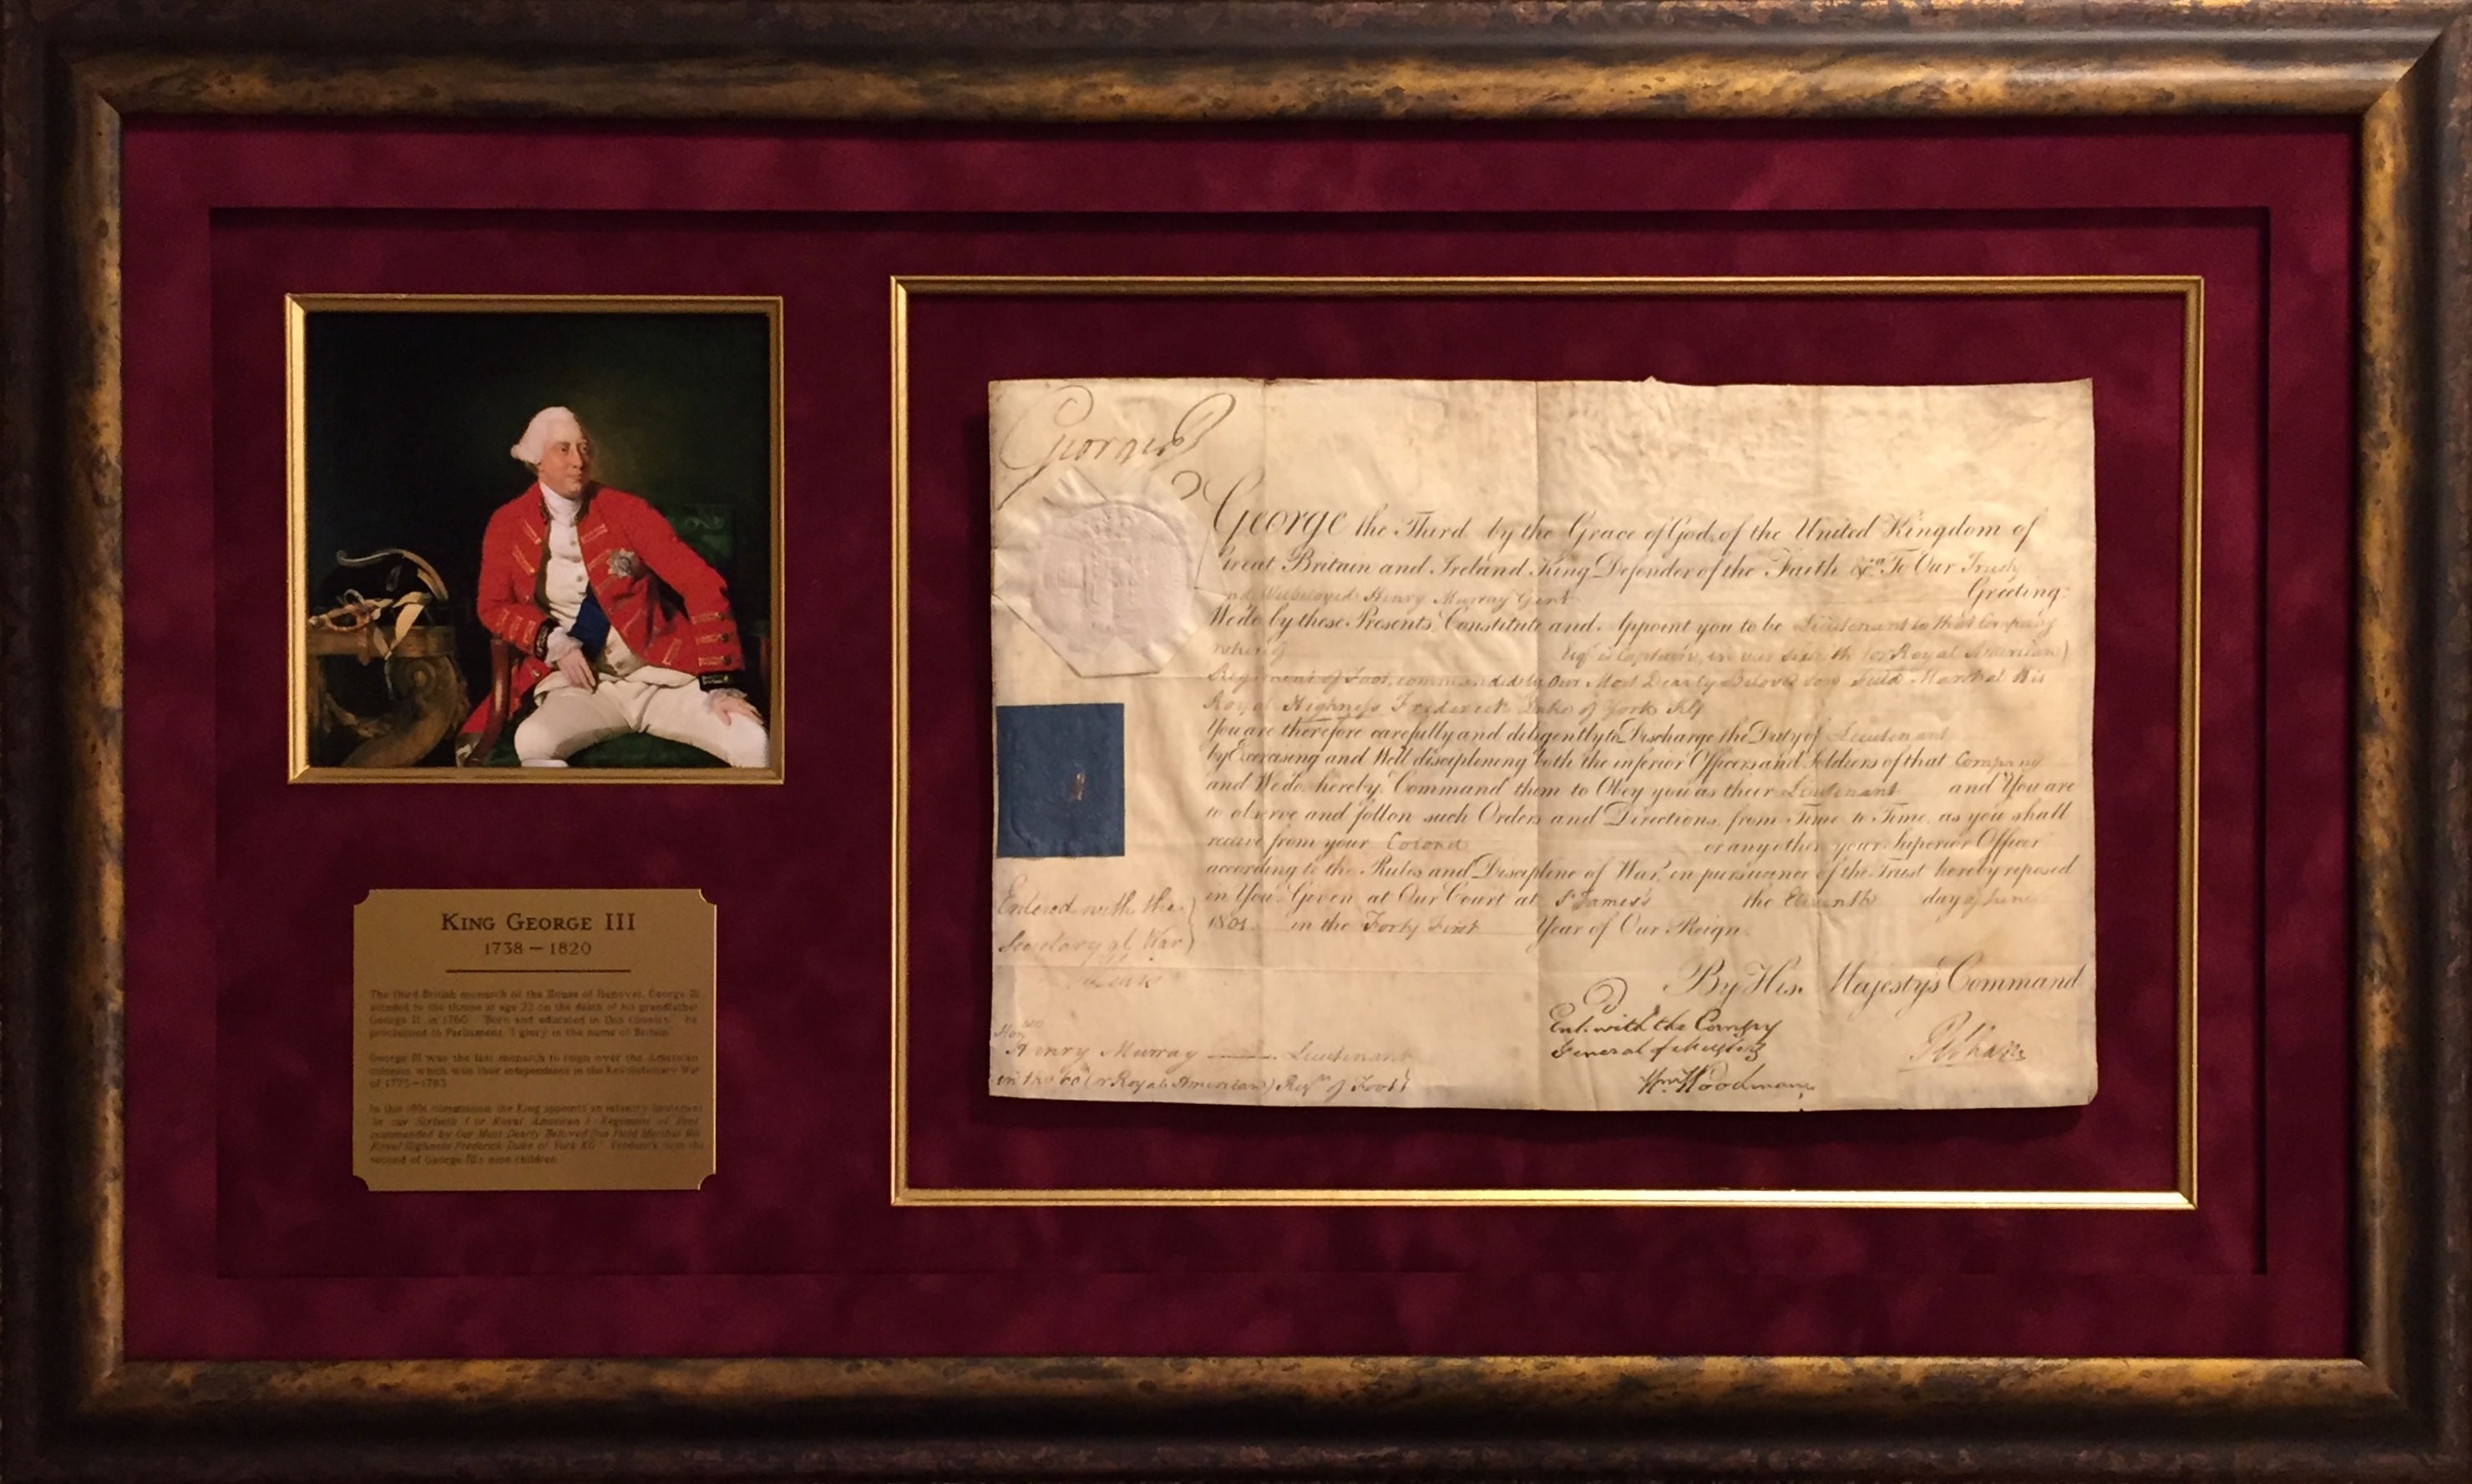 KING GEORGE III
1738 – 1820
The third British monarch of the House of Hanover, George III
acceded to the throne at age 22 on the death of his grandfather
George II in 1760. "Born and educated in this country," he
proclaimed to Parliament, "I glory in the name of Britain."
George III was the last monarch to reign over the American
colonies, which won their independence in the Revolutionary War
of 1775–1783.
In this 1801 commission, the King appoints an infantry lieutenant
"in our Sixtieth (or Royal American) Regiment of Foot
commanded by Our Most Dearly Beloved Son Field Marshal His
Royal Highness Frederick Duke of York KG." Frederick was the
second of George III's nine children.
George R
George the Third by the Grace of God, of the United Kingdom of
Great Britain and Ireland King, Defender of the Faith &c. To Our Trusty
and Welbeloved Henry Murray Gent Greeting:
We do by these Presents, Constitute and Appoint you to be Lieutenant to that Company
whereof Esqr. is Captain, in our Sixtieth (or Royal American)
Regiment of Foot, commanded by Our Most Dearly Beloved Son Field Marshal His
Royal Highness Frederick Duke of York KG
You are therefore carefully and diligently to Discharge the Duty of Lieutenant
by Exercising and Well disciplining both the inferior Officers and Soldiers of that Company
and We do hereby Command them to Obey you as their Lieutenant and You are
to observe and follow such Orders and Directions, from Time to Time, as you shall
receive from your Colonel or any other your Superior Officer
according to the Rules and Discipline of War, in pursuance of the Trust hereby reposed
in You. Given at Our Court at St James's the Eleventh day of June
1801. in the Forty First Year of Our Reign.
Entered with the
Secretary at War
By His Majesty's Command
Ent. with the Comssy
General of Musters
Wm Woodman
Henry Murray Lieutenant
in the 60th (or Royal American) Regt. of Foot